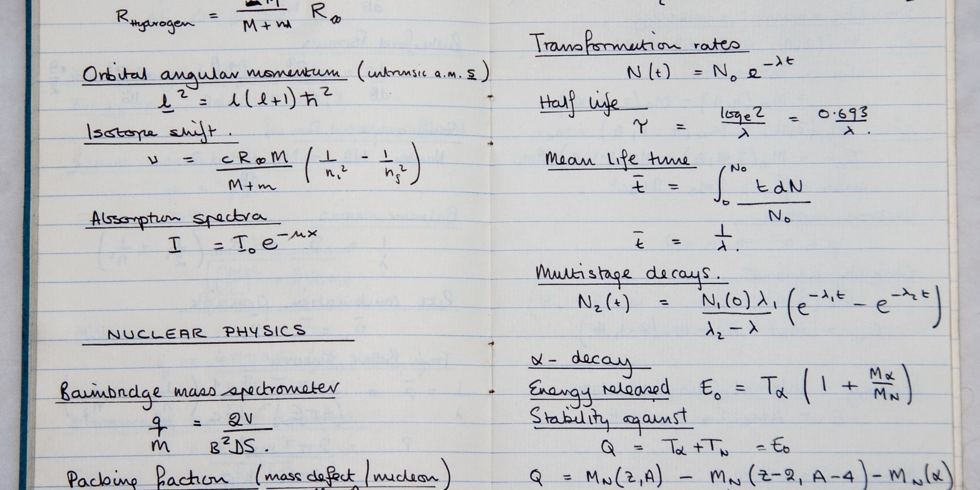 R_Hydrogen = M / M+m R∞
Orbital angular momentum (intrinsic a.m. s)
l² = l(l+1)ħ²
Isotope shift.
ν = cR∞M / M+m (1/nᵢ² - 1/n_f²)
Absorption spectra
I = I₀e^-μx
NUCLEAR PHYSICS
Bainbridge mass spectrometer
q/m = 2V / B²DS.
Packing fraction (mass defect / nucleon)
Transformation rates
N(t) = N₀ e^-λt
Half life
τ = logₑ2 / λ = 0.693 / λ.
Mean life time
t̄ = ∫₀^N₀ t dN / N₀
t̄ = 1/λ.
Multistage decays.
N₂(t) = N₁(0) λ₁ / λ₂ - λ (e^-λ₁t - e^-λ₂t)
α-decay
Energy released E₀ = Tα (1 + Mα/M_N)
Stability against
Q = Tα + T_N = E₀
Q = M_N(Z,A) - M_N(Z-2, A-4) - M_N(α)